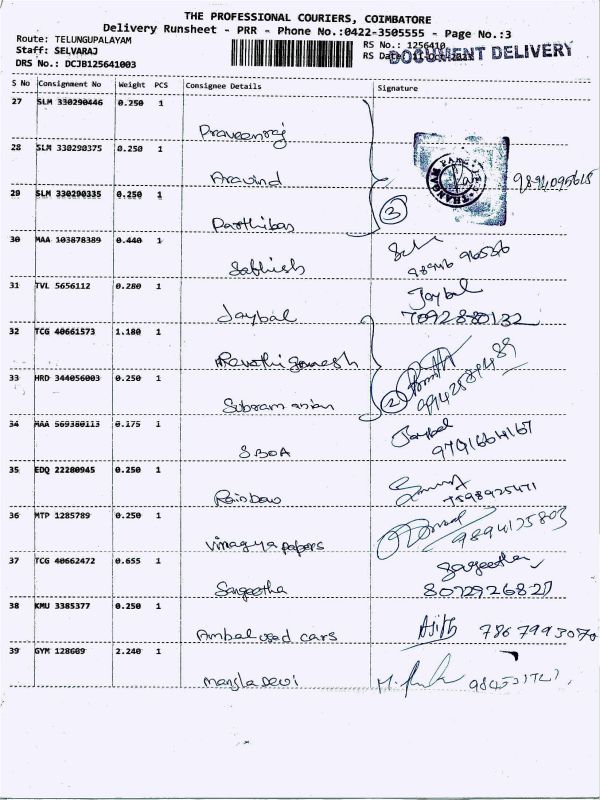 THE PROFESSIONAL COURIERS, COIMBATORE
Delivery Runsheet - PRR - Phone No.:0422-3505555 - Page No.:3
Route: TELUNGUPALAYAM
Staff: SELVARAJ
RS No.: 1256410
DRS No.: DCJB125641003
RS Date
DOCUMENT DELIVERY
S No Consignment No Weight PCS Consignee Details Signature
27 SLM 330290446 0.250 1
Praveenraj
28 SLM 330290375 0.250 1
Aravind
29 SLM 330290335 0.250 1
3
Parthiban
30 MAA 103878389 0.440 1
Sathish
31 TVL 5656112 0.280 1
Jaybal
Jaybal
7092880132
32 TCG 40661573 1.180 1
Revathi Ganesh
33 HRD 344056003 0.250 1
2
Subramanian
34 MAA 569380113 0.175 1
Jaybal
SBOA
35 EDQ 22280945 0.250 1
Rainbow
7598925471
36 MTP 1285789 0.250 1
9894125803
Vinayya papers
37 TCG 40662472 0.655 1
Sangeetha
Sangeetha
8072926827
38 KMU 3385377 0.250 1
Ambal used cars
Ajith 7867993070
39 GYM 128609 2.240 1
Mangla Devi